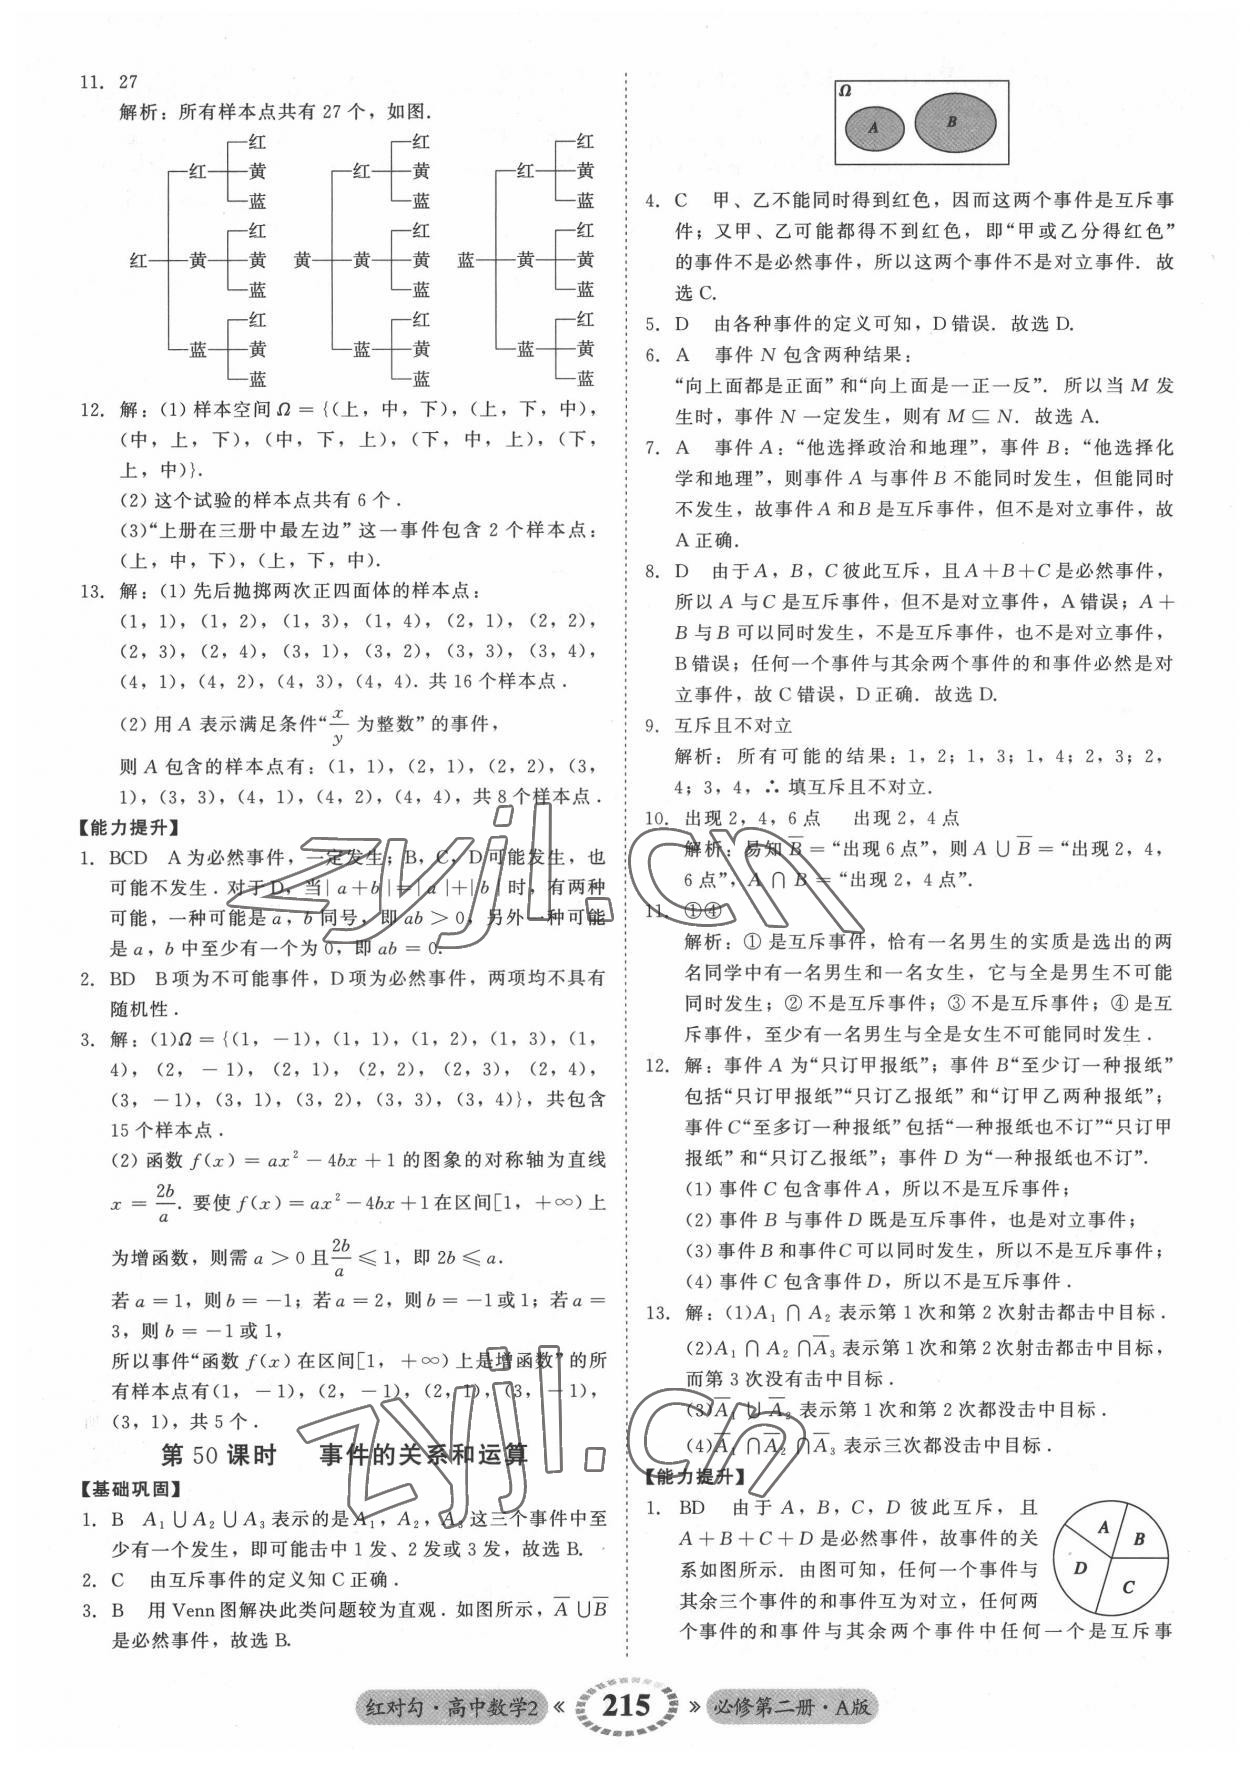 11. 27
解析：所有样本点共有 27 个，如图.
红 红 红
红 黄 红 黄 红 黄
蓝 蓝 蓝
红 红 红
红 黄 黄 黄 黄 黄 蓝 黄 黄
蓝 蓝 蓝
红 红 红
蓝 黄 蓝 黄 蓝 黄
蓝 蓝 蓝
12. 解：(1) 样本空间 Ω = {(上，中，下)，(上，下，中)，
(中，上，下)，(中，下，上)，(下，中，上)，(下，
上，中)}.
(2) 这个试验的样本点共有 6 个.
(3)“上册在三册中最左边” 这一事件包含 2 个样本点：
(上，中，下)，(上，下，中).
13. 解：(1) 先后抛掷两次正四面体的样本点：
(1，1)，(1，2)，(1，3)，(1，4)，(2，1)，(2，2)，
(2，3)，(2，4)，(3，1)，(3，2)，(3，3)，(3，4)，
(4，1)，(4，2)，(4，3)，(4，4). 共 16 个样本点.
(2) 用 A 表示满足条件“x/y 为整数” 的事件，
则 A 包含的样本点有：(1，1)，(2，1)，(2，2)，(3，
1)，(3，3)，(4，1)，(4，2)，(4，4)，共 8 个样本点.
【能力提升】
1. BCD A 为必然事件，一定发生；B，C，D 可能发生，也
可能不发生. 对于 D，当 | a + b | = | a | + | b | 时，有两种
可能，一种可能是 a，b 同号，即 ab > 0，另外一种可能
是 a，b 中至少有一个为 0，即 ab = 0.
2. BD B 项为不可能事件，D 项为必然事件，两项均不具有
随机性.
3. 解：(1)Ω = {(1，－1)，(1，1)，(1，2)，(1，3)，(1，
4)，(2，－1)，(2，1)，(2，2)，(2，3)，(2，4)，
(3，－1)，(3，1)，(3，2)，(3，3)，(3，4)}，共包含
15 个样本点.
(2) 函数 f(x) = ax² － 4bx + 1 的图象的对称轴为直线
x = 2b/a. 要使 f(x) = ax² － 4bx + 1 在区间[1，+∞) 上
为增函数，则需 a > 0 且 2b/a ≤ 1，即 2b ≤ a.
若 a = 1，则 b = －1；若 a = 2，则 b = －1 或 1；若 a =
3，则 b = －1 或 1，
所以事件“函数 f(x) 在区间[1，+∞) 上是增函数” 的所
有样本点有(1，－1)，(2，－1)，(2，1)，(3，－1)，
(3，1)，共 5 个.
第 50 课时 事件的关系和运算
【基础巩固】
1. B A₁ ∪ A₂ ∪ A₃ 表示的是 A₁，A₂，A₃ 这三个事件中至
少有一个发生，即可能击中 1 发、2 发或 3 发，故选 B.
2. C 由互斥事件的定义知 C 正确.
3. B 用 Venn 图解决此类问题较为直观. 如图所示，A̅ ∪ B̅
是必然事件，故选 B.
Ω
A B
4. C 甲、乙不能同时得到红色，因而这两个事件是互斥事
件；又甲、乙可能都得不到红色，即“甲或乙分得红色”
的事件不是必然事件，所以这两个事件不是对立事件. 故
选 C.
5. D 由各种事件的定义可知，D 错误. 故选 D.
6. A 事件 N 包含两种结果：
“向上面都是正面” 和“向上面是一正一反”. 所以当 M 发
生时，事件 N 一定发生，则有 M ⊆ N. 故选 A.
7. A 事件 A：“他选择政治和地理”，事件 B：“他选择化
学和地理”，则事件 A 与事件 B 不能同时发生，但能同时
不发生，故事件 A 和 B 是互斥事件，但不是对立事件，故
A 正确.
8. D 由于 A，B，C 彼此互斥，且 A + B + C 是必然事件，
所以 A 与 C 是互斥事件，但不是对立事件，A 错误；A +
B 与 B 可以同时发生，不是互斥事件，也不是对立事件，
B 错误；任何一个事件与其余两个事件的和事件必然是对
立事件，故 C 错误，D 正确. 故选 D.
9. 互斥且不对立
解析：所有可能的结果：1，2；1，3；1，4；2，3；2，
4；3，4，∴ 填互斥且不对立.
10. 出现 2，4，6 点 出现 2，4 点
解析：易知 B̅ = “出现 6 点”，则 A ∪ B̅ = “出现 2，4，
6 点”，A ∩ B = “出现 2，4 点”.
11. ①④
解析：① 是互斥事件，恰有一名男生的实质是选出的两
名同学中有一名男生和一名女生，它与全是男生不可能
同时发生；② 不是互斥事件；③ 不是互斥事件；④ 是互
斥事件，至少有一名男生与全是女生不可能同时发生.
12. 解：事件 A 为“只订甲报纸”；事件 B“至少订一种报纸”
包括“只订甲报纸”“只订乙报纸” 和“订甲乙两种报纸”；
事件 C“至多订一种报纸” 包括“一种报纸也不订”“只订甲
报纸” 和“只订乙报纸”；事件 D 为“一种报纸也不订”.
(1) 事件 C 包含事件 A，所以不是互斥事件；
(2) 事件 B 与事件 D 既是互斥事件，也是对立事件；
(3) 事件 B 和事件 C 可以同时发生，所以不是互斥事件；
(4) 事件 C 包含事件 D，所以不是互斥事件.
13. 解：(1)A₁ ∩ A₂ 表示第 1 次和第 2 次射击都击中目标.
(2)A₁ ∩ A₂ ∩ A̅₃ 表示第 1 次和第 2 次射击都击中目标，
而第 3 次没有击中目标.
(3)A̅₁ ∪ A̅₂ 表示第 1 次和第 2 次都没击中目标.
(4)A̅₁ ∩ A̅₂ ∩ A̅₃ 表示三次都没击中目标.
【能力提升】
1. BD 由于 A，B，C，D 彼此互斥，且
A + B + C + D 是必然事件，故事件的关
系如图所示. 由图可知，任何一个事件与
其余三个事件的和事件互为对立，任何两
个事件的和事件与其余两个事件中任何一个是互斥事
A B
D C
红对勾·高中数学2 « 215 » 必修第二册·A版
zyjl.cn
zyjl.cn